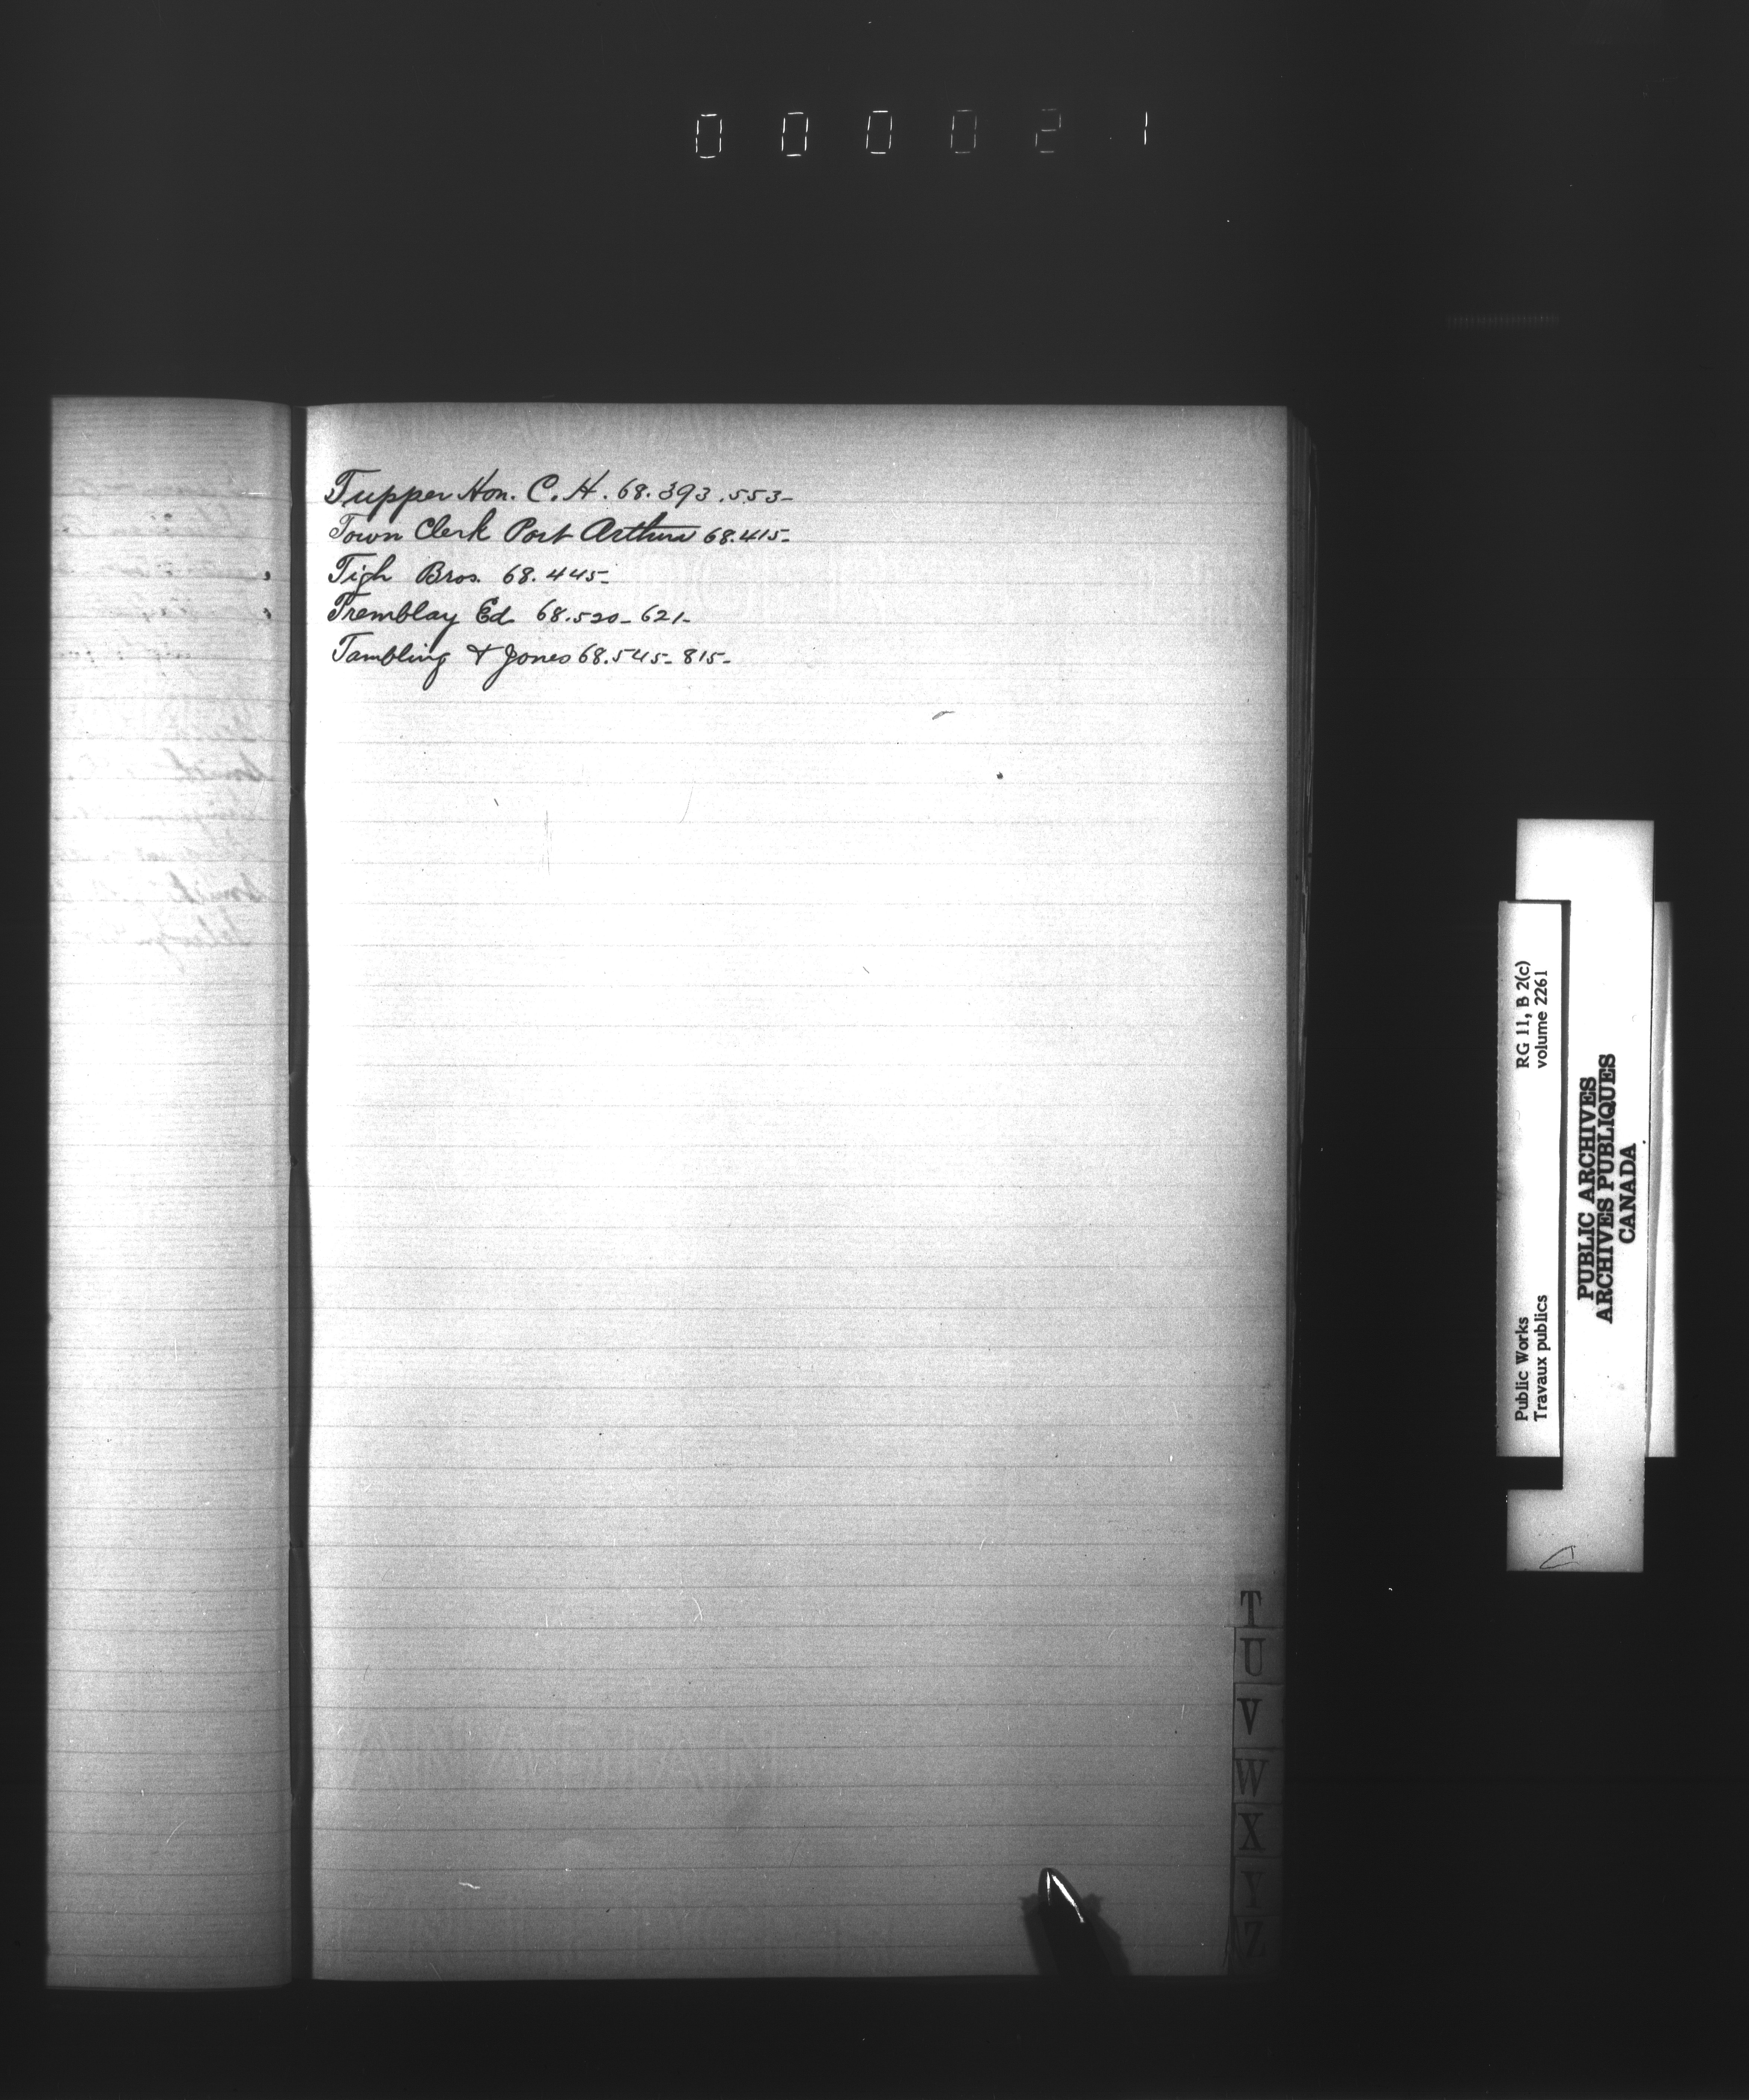 000021
Tupper Hon. C. H. 68.393.553-
Town Clerk Port Arthur 68.415-
Tigh Bros. 68.445-
Tremblay Ed 68.520-621-
Tambling & Jones 68.545-815-
T
U
V
W
X
Y
Z
RG 11, B 2(c)
volume 2261
Public Works
Travaux publics
PUBLIC ARCHIVES
ARCHIVES PUBLIQUES
CANADA